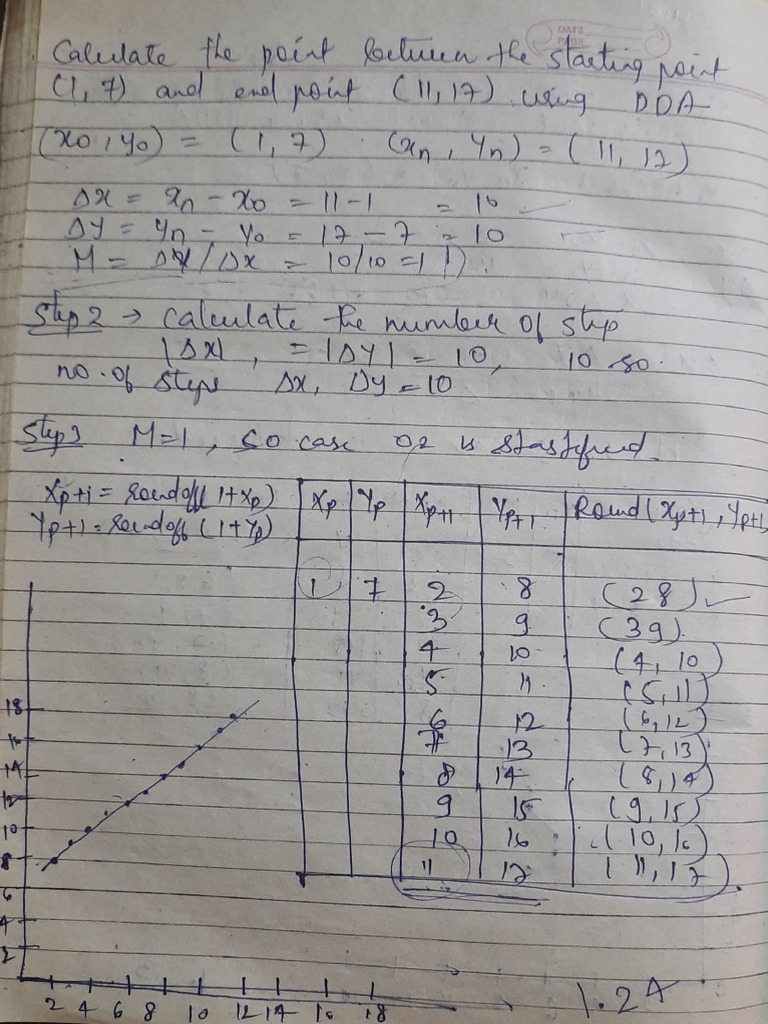 DATE
PAGE
Calculate the point between the starting point
(1, 7) and end point (11, 17) using DDA
(x0, y0) = (1, 7) (xn, Yn) = (11, 17)
Δx = xn - x0 = 11 - 1 = 10
ΔY = Yn - Y0 = 17 - 7 = 10
M = ΔY/Δx = 10/10 = 1
Step 2 → calculate the number of step
|Δx|, = |ΔY| = 10, 10 so.
no. of steps Δx, ΔY = 10
Step 3 M=1, so case 02 is
Xp+1 = roundoff(1+xp)
Yp+1 = roundoff(1+Yp)
Xp Yp Xp+1 Yp+1 Round(Xp+1, Yp+1)
1 7 2 8 (2 8)
3 9 (3 9)
4 10 (4, 10)
5 11 (5, 11)
6 12 (6, 12)
7 13 (7, 13)
8 14 (8, 14)
9 15 (9, 15)
10 16 (10, 16)
11 17 (11, 17)
18
16
14
12
10
8
6
4
2
2 4 6 8 10 12 14 16 18
1.24